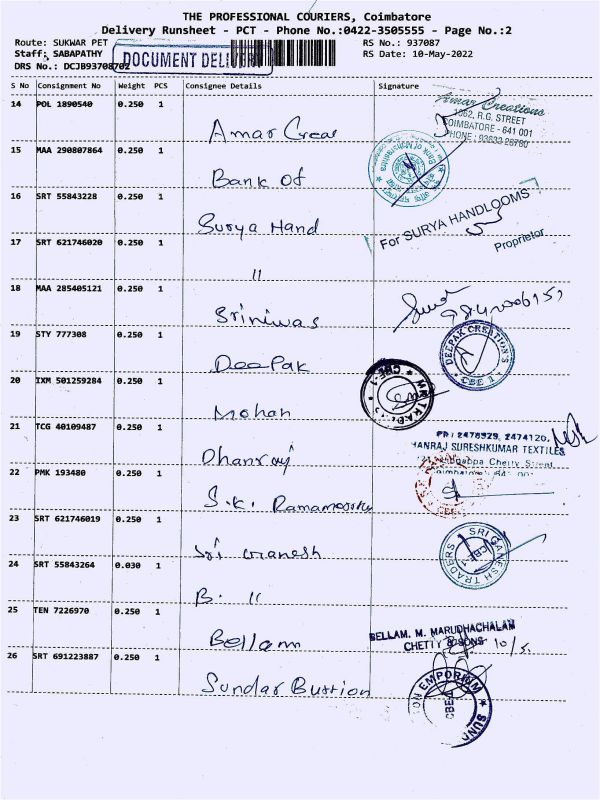 THE PROFESSIONAL COURIERS, Coimbatore
Delivery Runsheet - PCT - Phone No.:0422-3505555 - Page No.:2
Route: SUKWAR PET RS No.: 937087
Staff: SABAPATHY DOCUMENT DELIVERY RS Date: 10-May-2022
DRS No.: DCJB93708702
S No Consignment No Weight PCS Consignee Details Signature
14 POL 1890540 0.250 1
Amar Creations
1062, R.G. STREET
COIMBATORE - 641 001
PHONE:
Amar Crea
15 MAA 290807864 0.250 1
Bank of Maharashtra
Bank Of
16 SRT 55843228 0.250 1
Surya Hand
For SURYA HANDLOOMS
Proprietor
17 SRT 621746020 0.250 1
"
18 MAA 285405121 0.250 1
Sriniwas
19 STY 777308 0.250 1
DEEPAK CREATION'S
CBE 1
DeePak
20 IXM 501259284 0.250 1
CBE-1
Mohan
21 TCG 40109487 0.250 1
PH: 2478929, 2474120,
HANRAJ SURESHKUMAR TEXTILES
Chetty Street
Dhanraj
22 PMK 193480 0.250 1
CBE
S.K. Ramamoorthy
23 SRT 621746019 0.250 1
SRI GANESH TRADERS
CBE-1
Sri Ganesh
24 SRT 55843264 0.030 1
B. "
25 TEN 7226970 0.250 1
BELLAM. M. MARUDHACHALAM
CHETTY & SONS 10/5
Bellam
26 SRT 691223887 0.250 1
ON EMPORIUM
CBE-1
Sundar Buttion